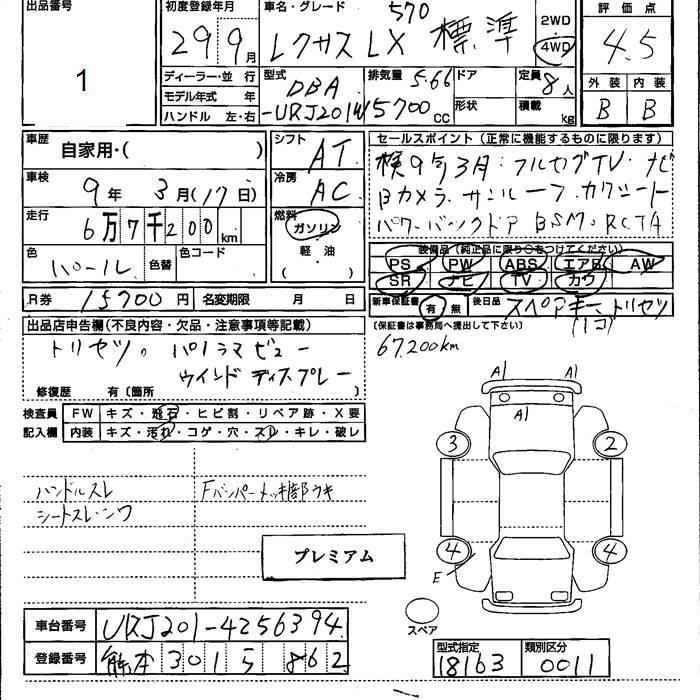 出品番号 初度登録年月 車名・グレード 570 2WD 評価点
1 29 9月 レクサス LX 標準 4WD 4.5
ディーラー・並行 型式 排気量 5.66 ドア 定員 8人 外装 内装
モデル年式 年 DBA
ハンドル 左・右 -URJ201W 5700CC 形状 積載 kg B B
車歴 自家用・( ) シフト AT セールスポイント(正常に機能するものに限ります)
車検 9年 3月(17日) 冷房 AC 検9年3月・フルセグTV・ナビ
Bカメラ サンルーフ
走行 6万7千200km 燃料 ガソリン パワーバックドア BSM・RCTA
軽・油 ( ) 装備品(純正品に限り○をつけてください)
色 パール 色替 色コード PS PW ABS エアB AW
SR ナビ TV カワ
R券 15700円 名変期限 月 日 新車保証書 有 無 後日品 スペアキー、トリセツ
(1コ)
出品店申告欄(不良内容・欠品・注意事項等記載) (保証書は事務局へ提出して下さい)
トリセツ パノラマビュー 67,200km
ウインドディスプレー
修復歴 有〔箇所
検査員 FW キズ・飛石・ヒビ割・リペア跡・X要
記入欄 内装 キズ・汚れ・コゲ・穴・スレ・キレ・破レ
A1 A1
A1
3 2
ハンドルスレ Fバンパーメッキ部ウキ
シートスレ・シワ
プレミアム
4 4
E
スペア
車台番号 URJ201-4256394
登録番号 熊本 301 ら 862
型式指定 類別区分
18163 0011